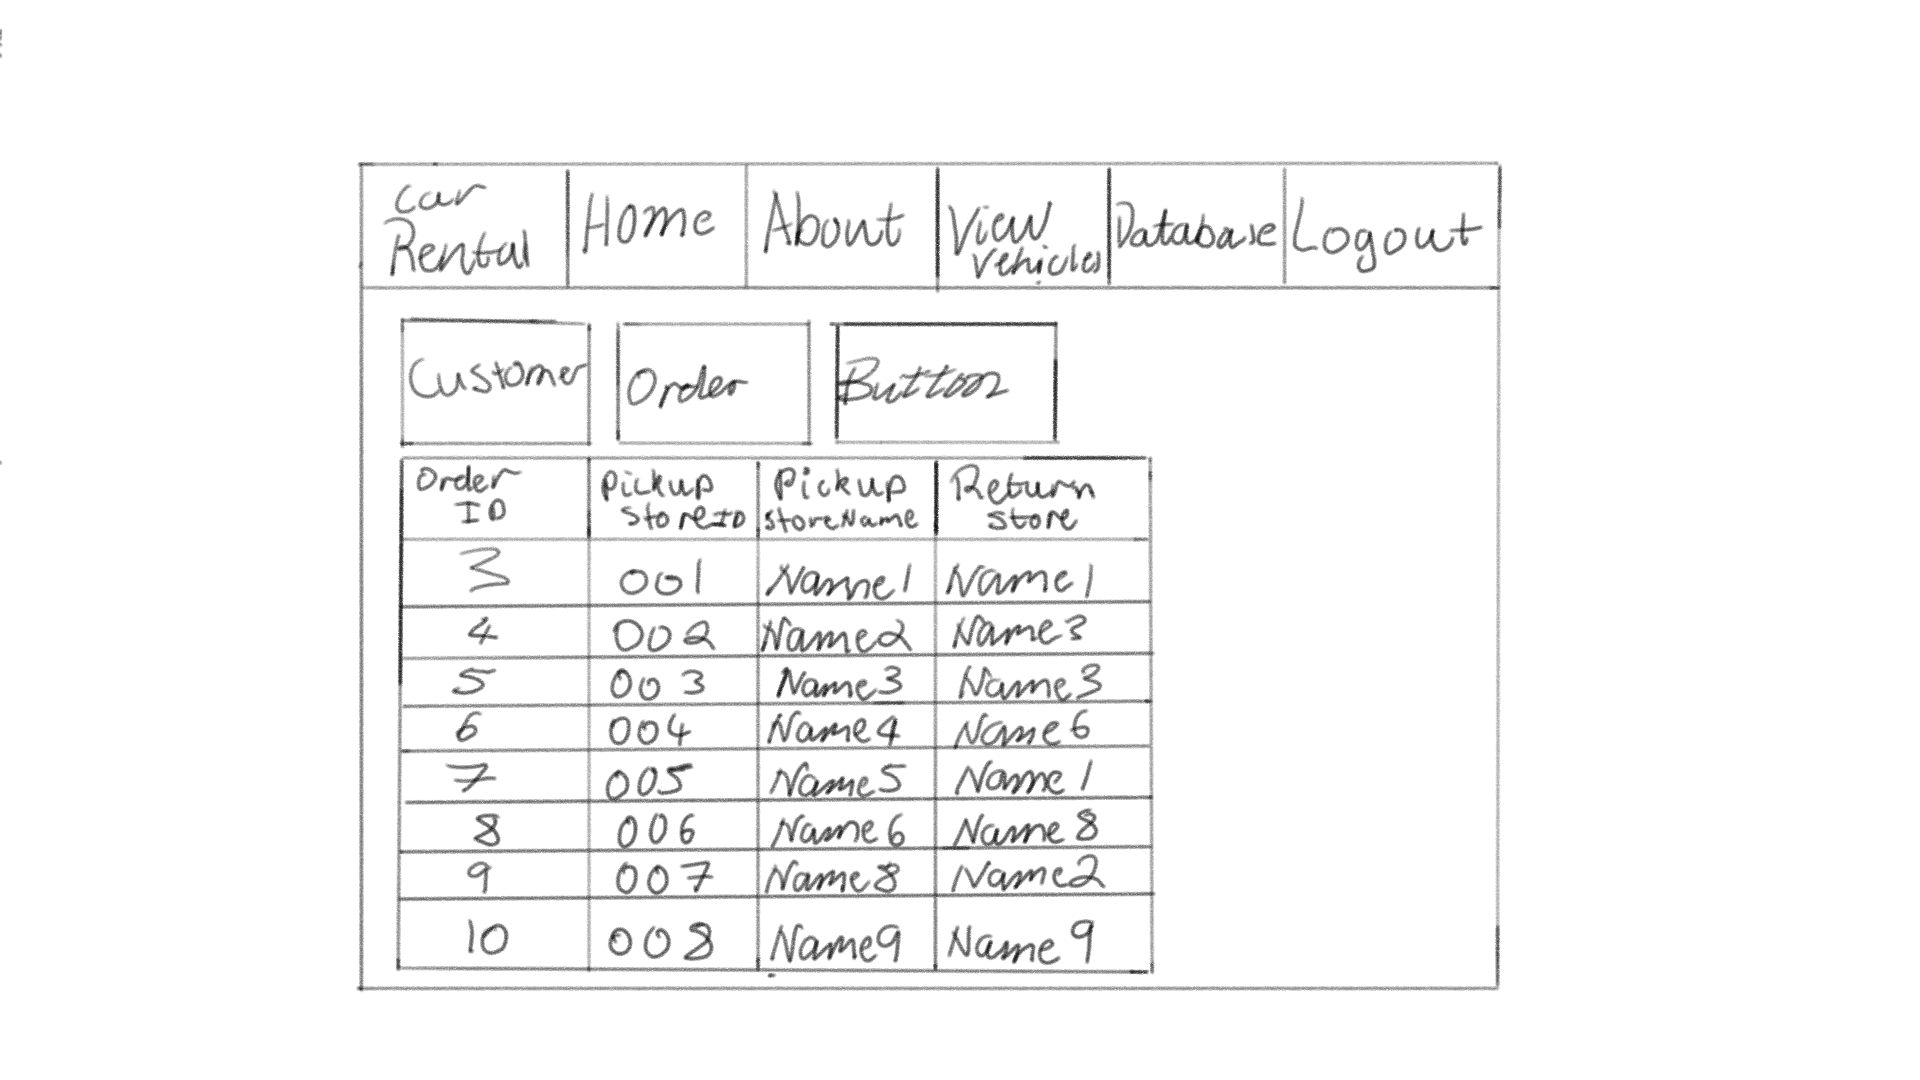 Car Rental Home About View Vehicles Database Logout
Customer Order Button
Order ID Pickup StoreID Pickup StoreName Return Store
3 001 Name1 Name1
4 002 Name2 Name3
5 003 Name3 Name3
6 004 Name4 Name6
7 005 Name5 Name1
8 006 Name6 Name8
9 007 Name8 Name2
10 008 Name9 Name9